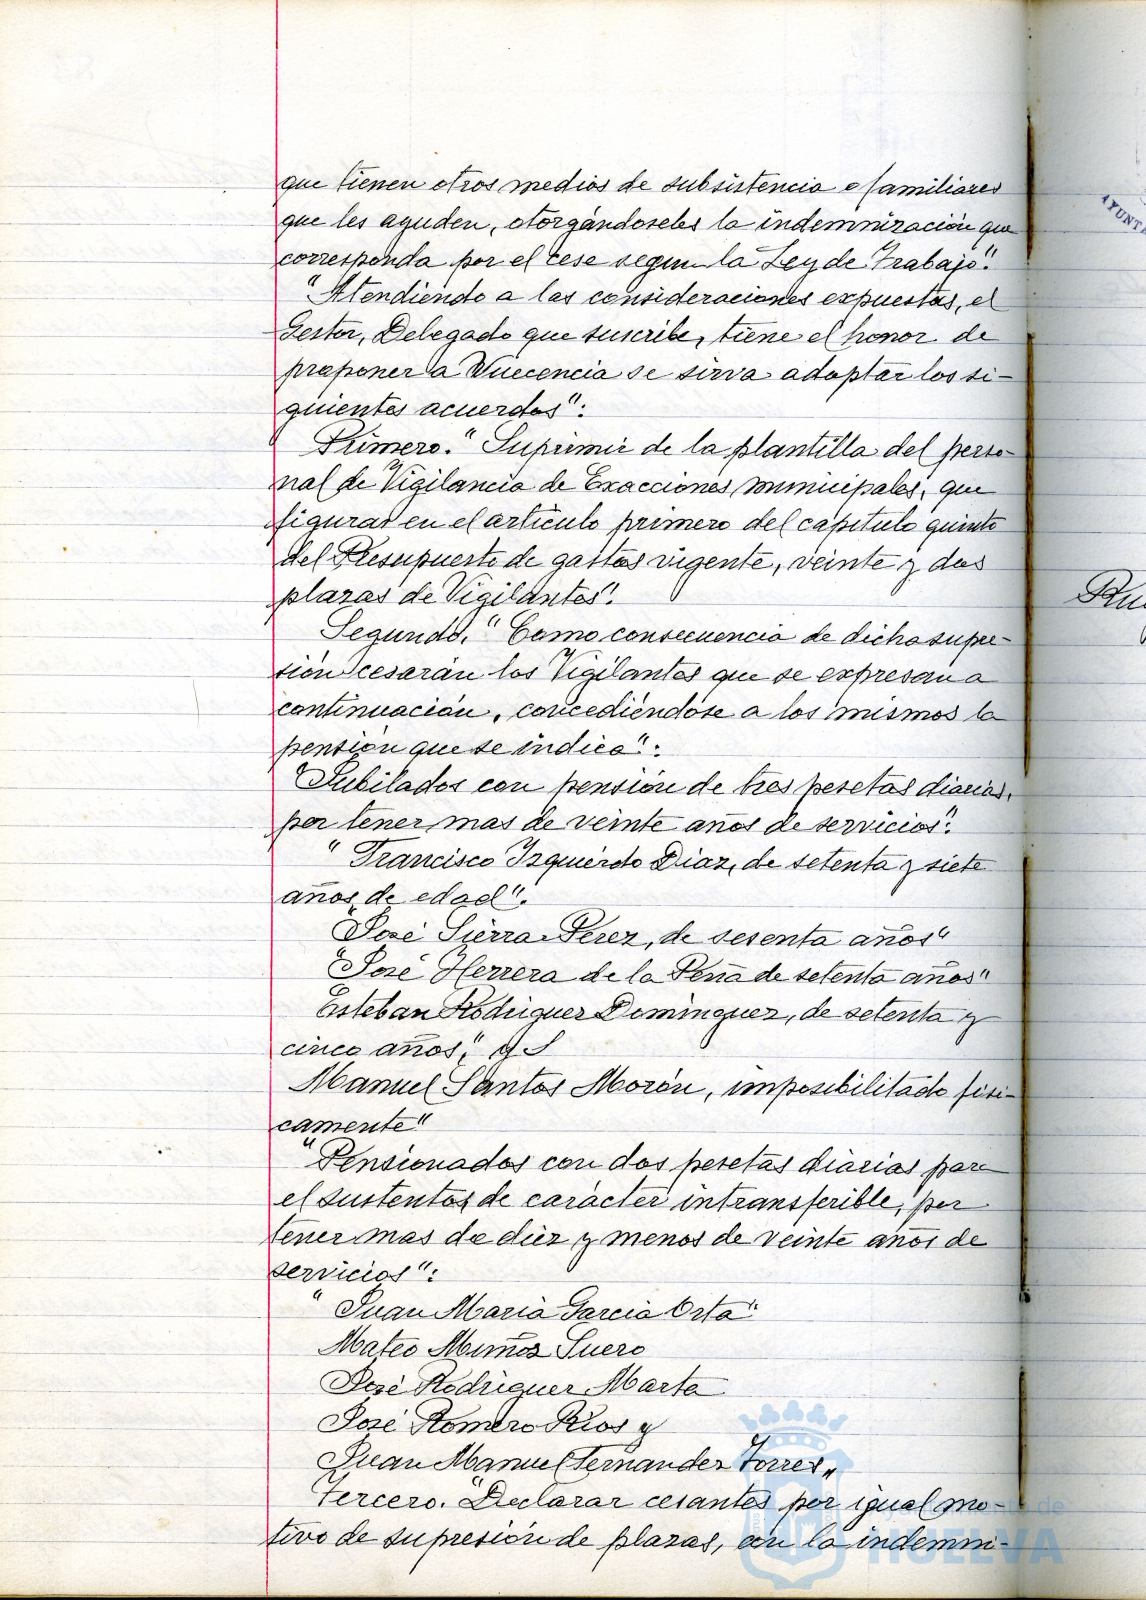 que tienen otros medios de subsistencia o familiares
que les ayuden, otorgándoseles la indemnización que
corresponda por el cese segun la Ley de Trabajo".
"Atendiendo a las consideraciones expuestas, el
Gestor, Delegado que suscribe, tiene el honor de
proponer a Vuecencia se sirva adoptar los si-
guientes acuerdos":
Primero." Suprimir de la plantilla del perso-
nal de Vigilancia de Exacciones municipales, que
figuran en el artículo primero del capítulo quinto
del Presupuesto de gastos vigente, veinte y dos
plazas de Vigilantes".
Segundo." Como consecuencia de dicha supre-
sión cesarán los Vigilantes que se expresan a
continuación, concediéndose a los mismos la
pensión que se indica":
"Jubilados con pensión de tres pesetas diarias,
por tener mas de veinte años de servicios".
"Francisco Izquierdo Diaz, de setenta y siete
años de edad".
"José Sierra Perez, de sesenta años"
"José Herrera de la Peña de setenta años"
Esteban Rodriguez Dominguez, de setenta y
cinco años", y
Manuel Santos Morón, imposibilitado físi-
camente"
"Pensionados con dos pesetas diarias para
el sustento, de carácter intransferible, por
tener mas de diez y menos de veinte años de
servicios":
"Juan Maria Garcia Orta"
Mateo Muñoz Suero
José Rodriguez Marta
José Romero Rios y
Juan Manuel Fernandez Torres"
Tercero. "Declarar cesantes por igual mo-
tivo de supresión de plazas, con la indemni-
AYUNTA
Ayuntamiento de
HUELVA